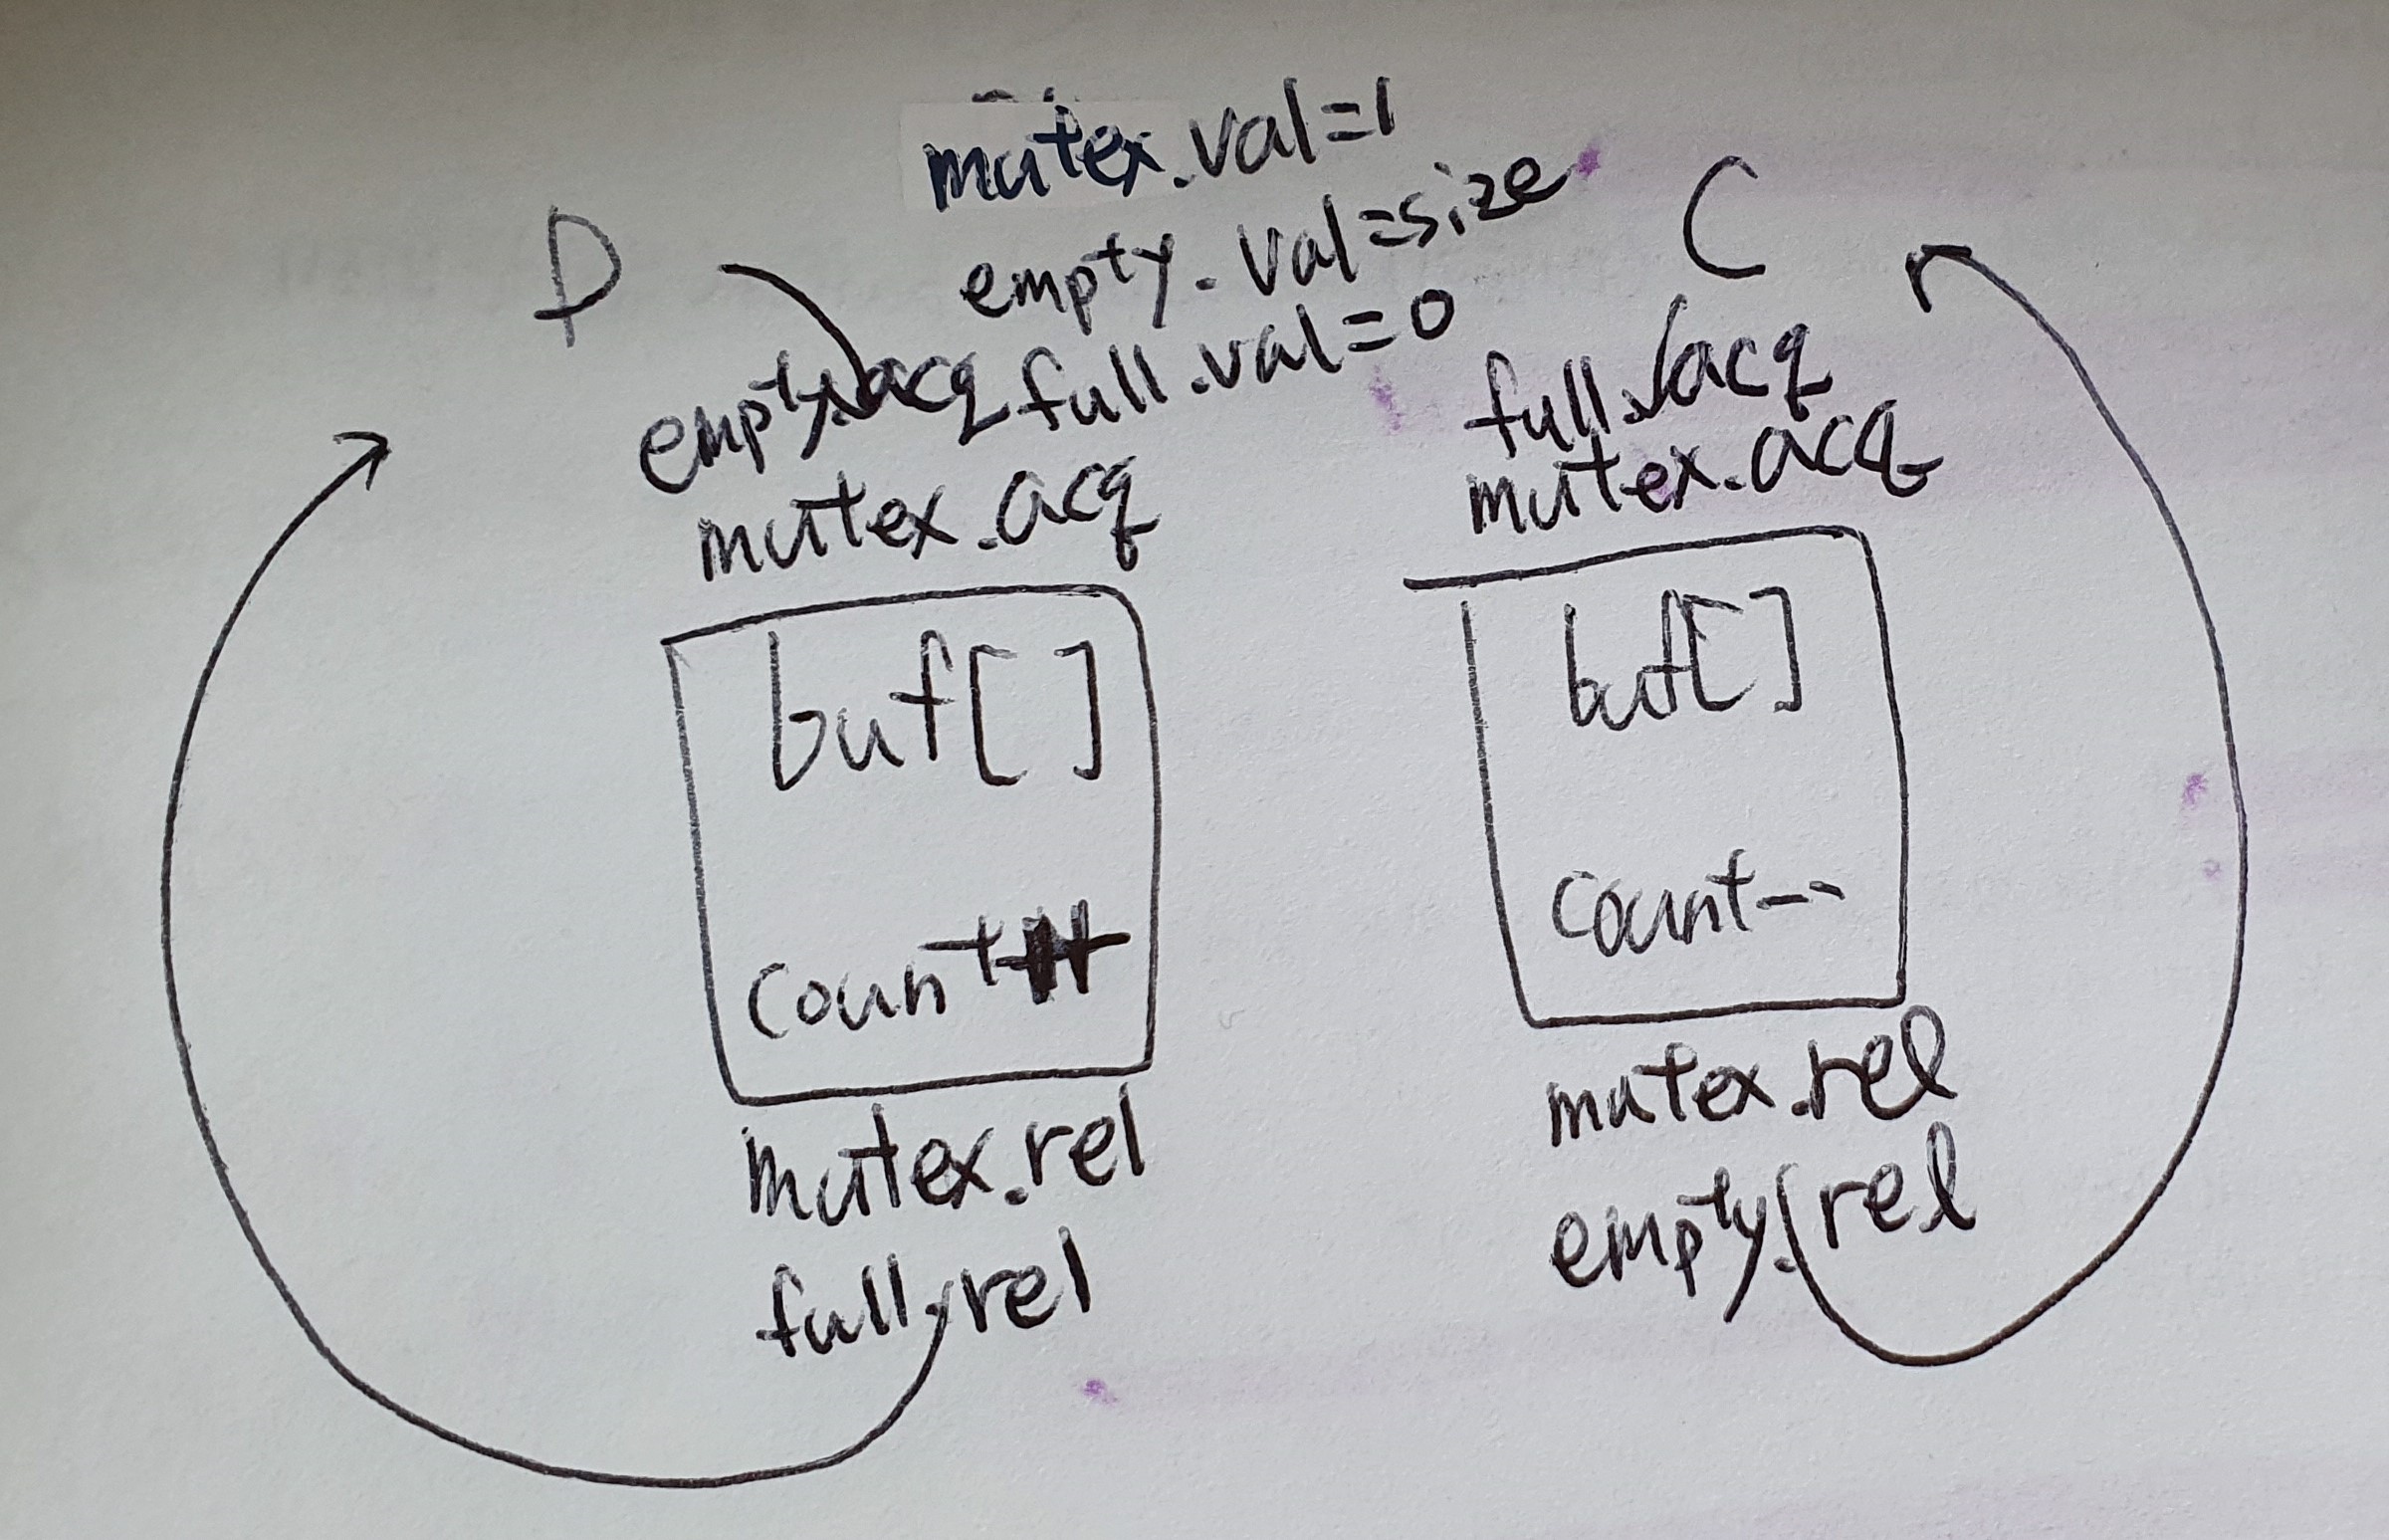 mutex.val=1
empty.val=size
full.val=0
P
empty.acq
mutex.acq
buf[ ]
count++
mutex.rel
full.rel
C
full.acq
mutex.acq
buf[ ]
count--
mutex.rel
empty.rel